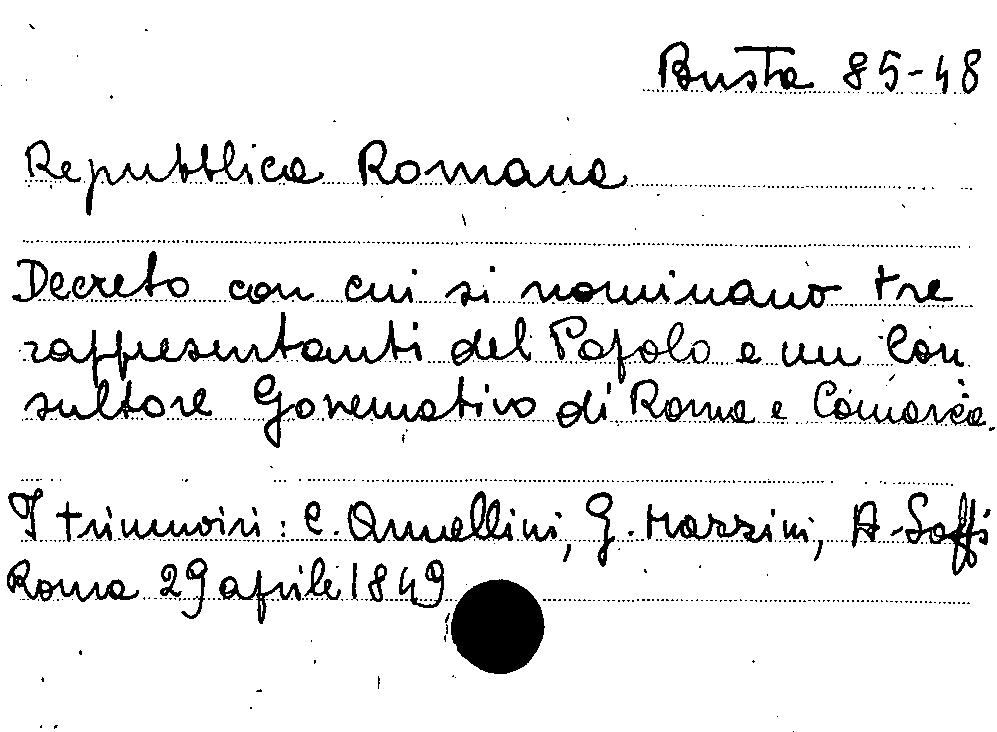 Busta 85-48
Repubblica Romana
Decreto con cui si nominano tre
rappresentanti del Popolo e un Con
sultore Governativo di Roma e Comarca.
I triumviri: C. Armellini, G. Mazzini, A. Saffi
Roma 29 aprile 1849